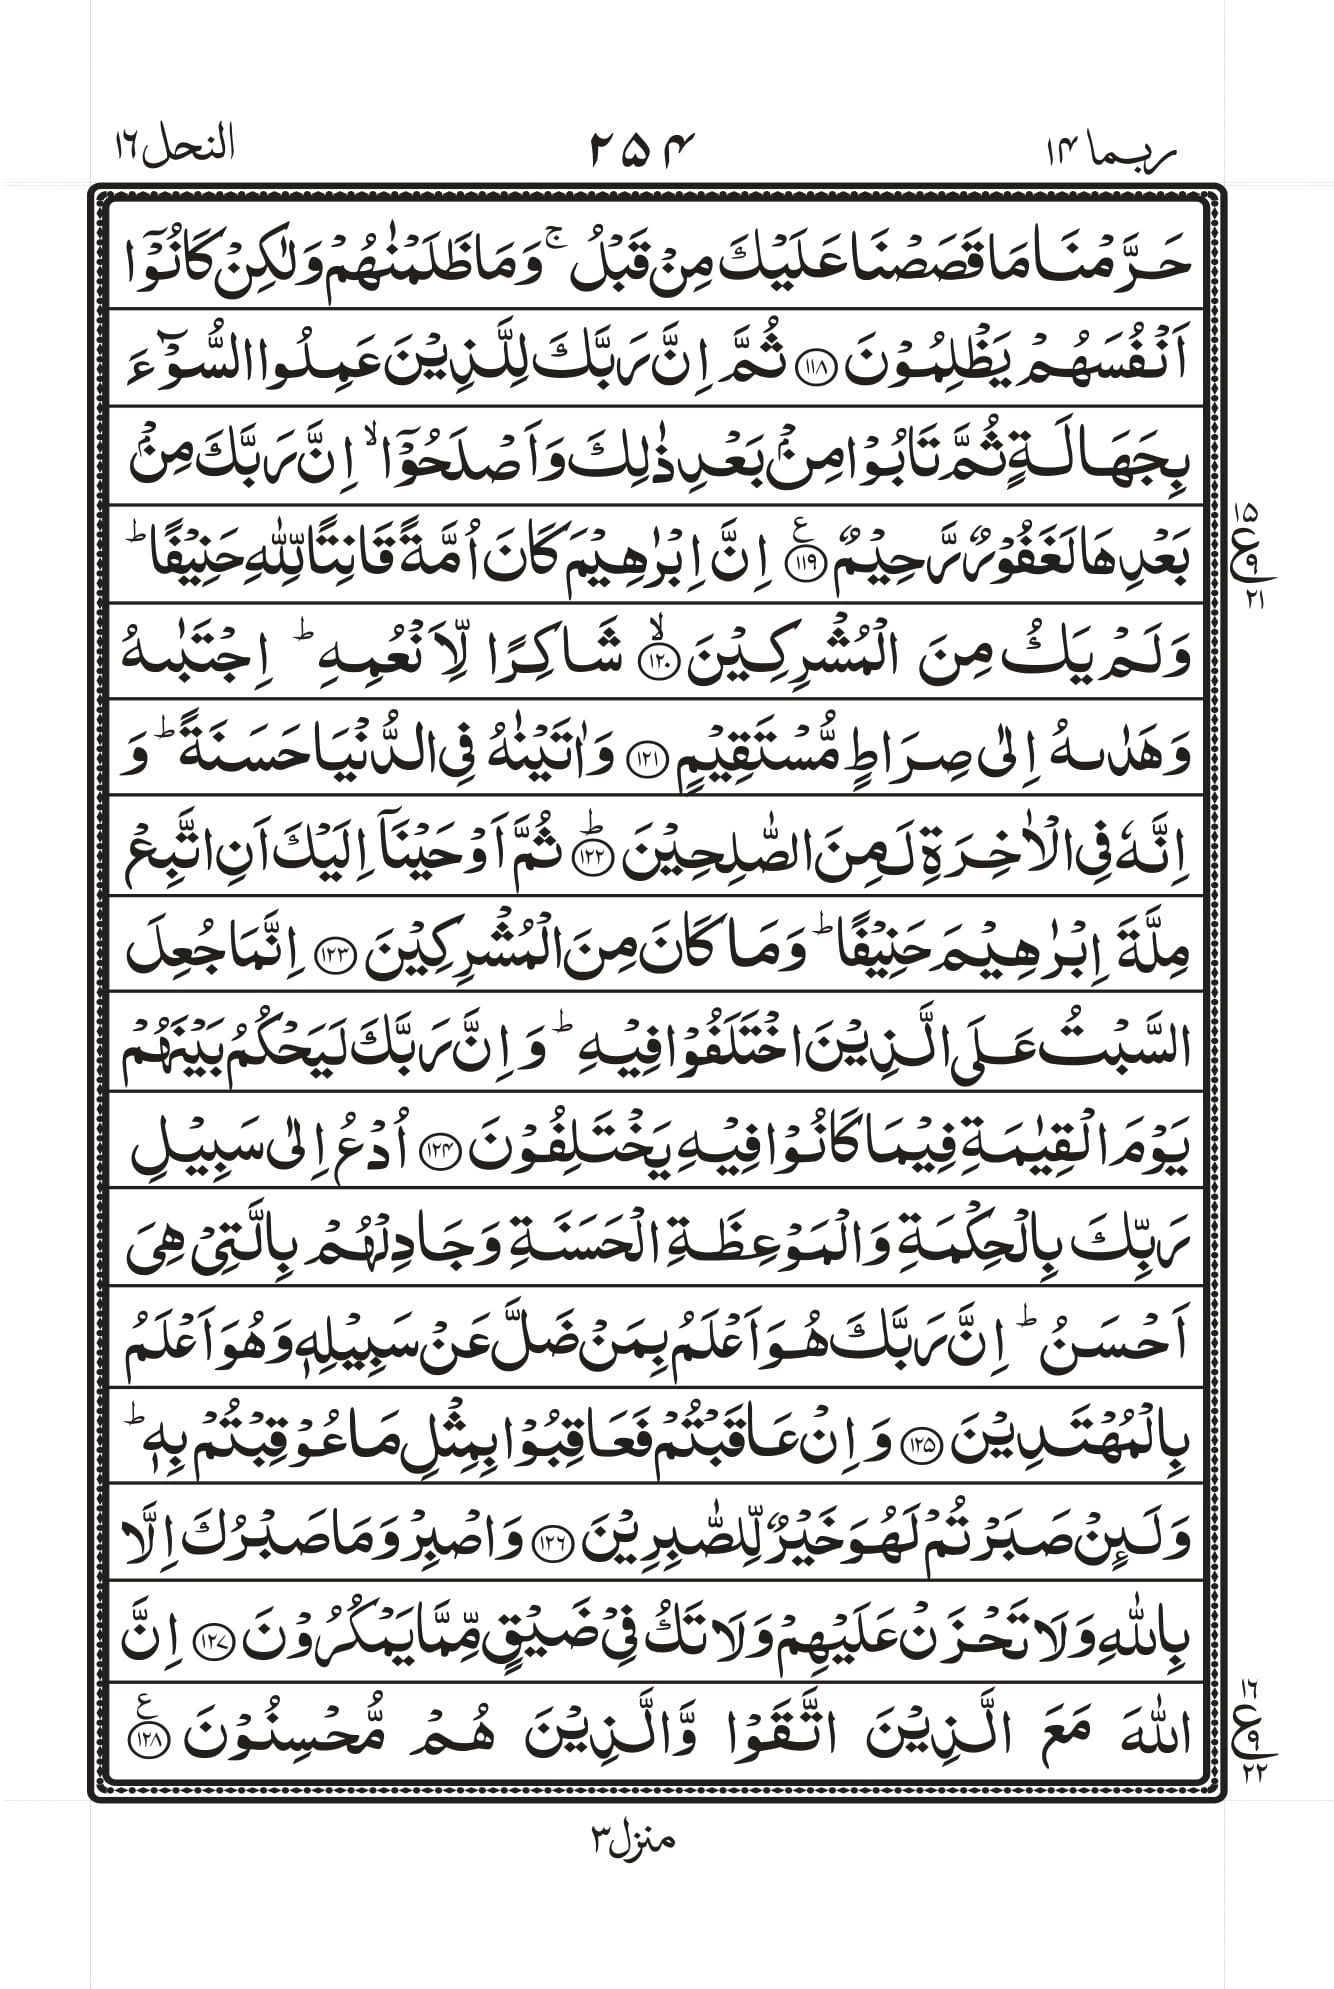 ربما ١٤
٢٥٤
النحل ١٦
حَرَّمْنَا مَا قَصَصْنَا عَلَيْكَ مِنْ قَبْلُ ۚ وَمَا ظَلَمْنٰهُمْ وَلٰكِنْ كَانُوْۤا
اَنْفُسَهُمْ يَظْلِمُوْنَ ﴿١١٨﴾ ثُمَّ اِنَّ رَبَّكَ لِلَّذِيْنَ عَمِلُوا السُّوْٓءَ
بِجَهَالَةٍ ثُمَّ تَابُوْا مِنْۢ بَعْدِ ذٰلِكَ وَاَصْلَحُوْۤا ۙ اِنَّ رَبَّكَ مِنْۢ
بَعْدِهَا لَغَفُوْرٌ رَّحِيْمٌ ﴿١١٩﴾ ع اِنَّ اِبْرٰهِيْمَ كَانَ اُمَّةً قَانِتًا لِّلّٰهِ حَنِيْفًا ؕ
١٥
ع
٩
٢١
وَلَمْ يَكُ مِنَ الْمُشْرِكِيْنَ ﴿١٢٠﴾ ۙ شَاكِرًا لِّاَنْعُمِهِ ؕ اِجْتَبٰىهُ
وَهَدٰىهُ اِلٰى صِرَاطٍ مُّسْتَقِيْمٍ ﴿١٢١﴾ وَاٰتَيْنٰهُ فِي الدُّنْيَا حَسَنَةً ؕ وَ
اِنَّهٗ فِي الْاٰخِرَةِ لَمِنَ الصّٰلِحِيْنَ ﴿١٢٢﴾ ؕ ثُمَّ اَوْحَيْنَاۤ اِلَيْكَ اَنِ اتَّبِعْ
مِلَّةَ اِبْرٰهِيْمَ حَنِيْفًا ؕ وَمَا كَانَ مِنَ الْمُشْرِكِيْنَ ﴿١٢٣﴾ اِنَّمَا جُعِلَ
السَّبْتُ عَلَى الَّذِيْنَ اخْتَلَفُوْا فِيْهِ ؕ وَاِنَّ رَبَّكَ لَيَحْكُمُ بَيْنَهُمْ
يَوْمَ الْقِيٰمَةِ فِيْمَا كَانُوْا فِيْهِ يَخْتَلِفُوْنَ ﴿١٢٤﴾ اُدْعُ اِلٰى سَبِيْلِ
رَبِّكَ بِالْحِكْمَةِ وَالْمَوْعِظَةِ الْحَسَنَةِ وَجَادِلْهُمْ بِالَّتِيْ هِيَ
اَحْسَنُ ؕ اِنَّ رَبَّكَ هُوَ اَعْلَمُ بِمَنْ ضَلَّ عَنْ سَبِيْلِهٖ وَهُوَ اَعْلَمُ
بِالْمُهْتَدِيْنَ ﴿١٢٥﴾ وَاِنْ عَاقَبْتُمْ فَعَاقِبُوْا بِمِثْلِ مَا عُوْقِبْتُمْ بِهٖ ؕ
وَلَىِٕنْ صَبَرْتُمْ لَهُوَ خَيْرٌ لِّلصّٰبِرِيْنَ ﴿١٢٦﴾ وَاصْبِرْ وَمَا صَبْرُكَ اِلَّا
بِاللّٰهِ وَلَا تَحْزَنْ عَلَيْهِمْ وَلَا تَكُ فِيْ ضَيْقٍ مِّمَّا يَمْكُرُوْنَ ﴿١٢٧﴾ اِنَّ
اللّٰهَ مَعَ الَّذِيْنَ اتَّقَوْا وَّالَّذِيْنَ هُمْ مُّحْسِنُوْنَ ﴿١٢٨﴾ ع
١٦
ع
٩
٢٢
منزل ٣